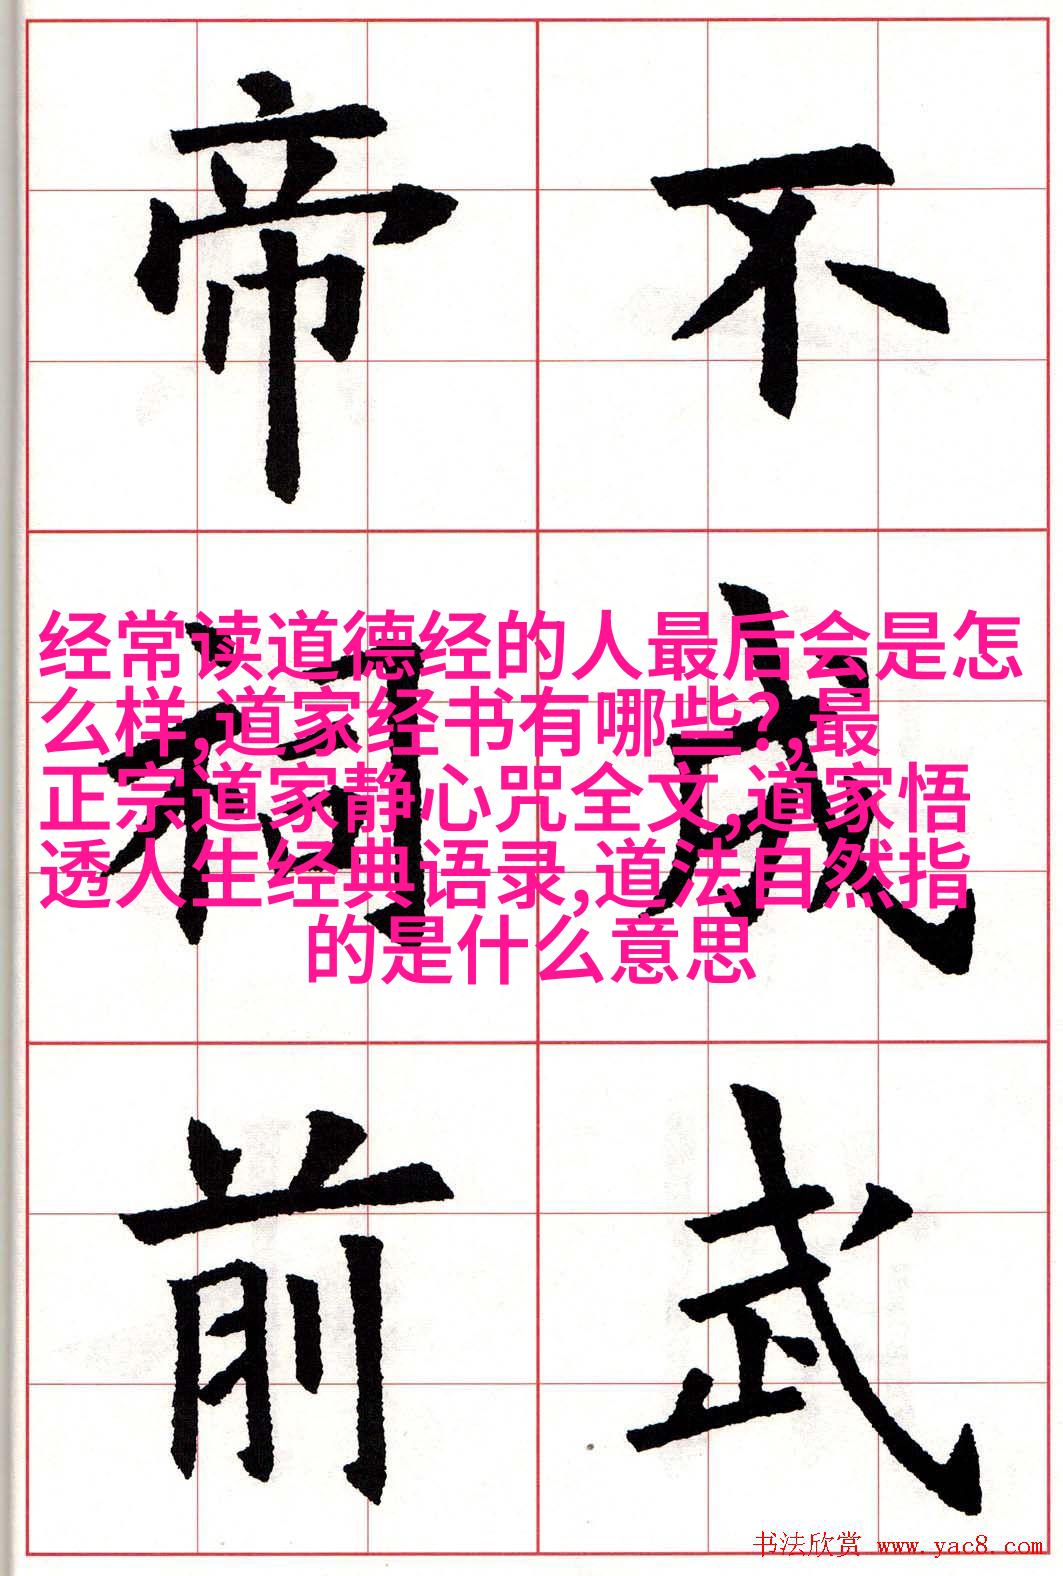 帝 不
桐 成
前 武
经常读道德经的人最后会是怎
么样,道家经书有哪些?,最
正宗道家静心咒全文,道家悟
透人生经典语录,道法自然指
的是什么意思
书法欣赏 www.yac8.com